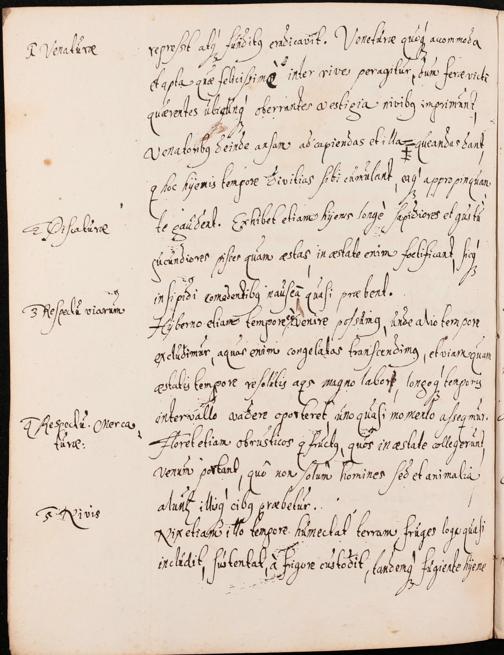 1 Venaturæ
repressit atq; funditq eradicavit. Venaturæ quoq; accommoda
et apta quæ felicissimè inter nives peragitur, dum feræ victū
quærentes ubicunq; oberrantes vestigia nivibq imprimunt,
Venatoribq deinde ansam ad capiendas et illaqueandas dant,
q hoc hyemis tempore divitias sibi cumulant, eaq; appropinquan
te gaudent. Exhibet etiam hyems longè sapidiores et gustu
2 Piscaturæ
iucundiores pisces quam æstas, in æstate enim foetificant, sicq;
insipidi comedentibq nauseā quasi præbent.
3 Respectu viarum
Hyberno etiam tempore venire possumq, unde alio tempore
excludimur, aquas enim congelatas transcendimq, et viam quam
æstatis tempore resolutis aqs magno labore, longoq; temporis
intervallo vadere oporteret uno quasi momento assequimur.
4 Respectu Merca
turæ:
Floret etiam ob rusticos q fructq, quos in æstate collegerunt,
venum portant, quo non solum homines sed et animalia
aluntq illisq cibq præbetur.
5 Nivis
Nix etiam illo tempore humectat terram, fruges loga quasi
includit, sustentat, a frigore custodit, tandemq; fugiente hyeme